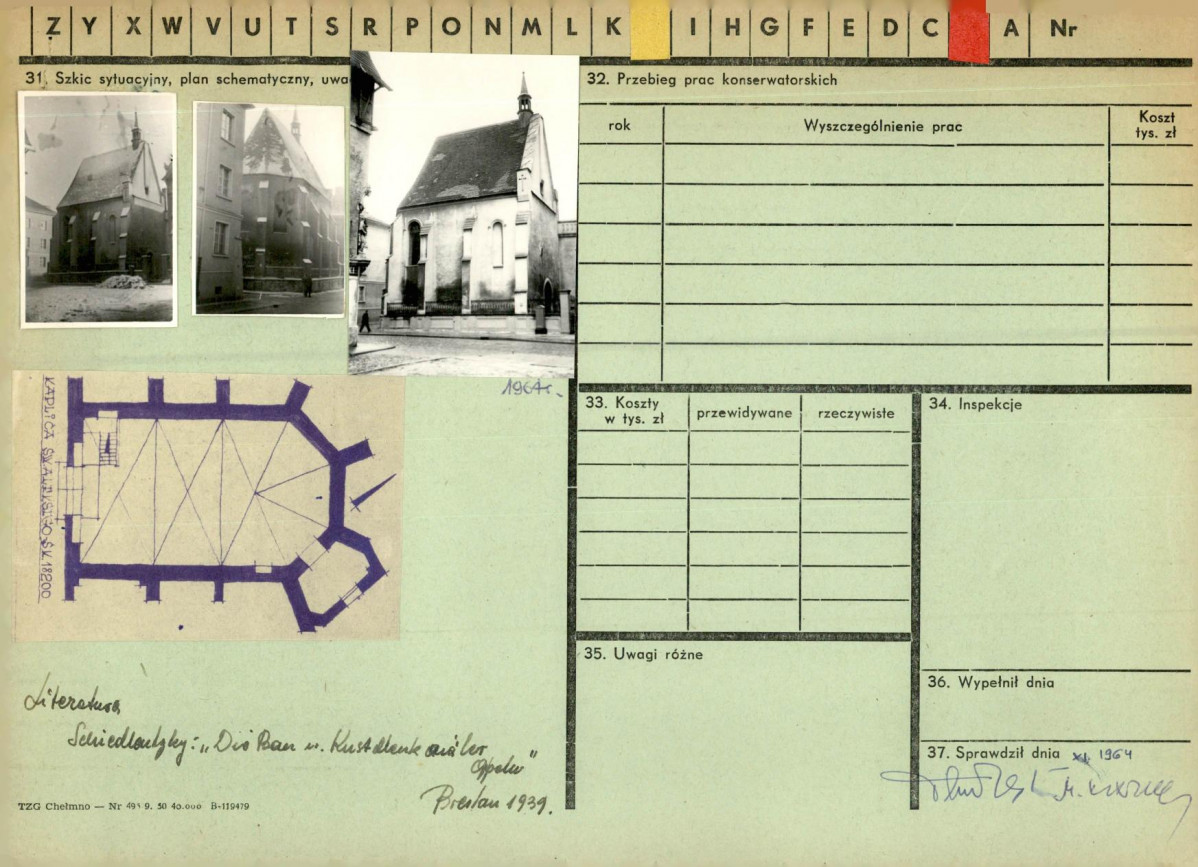 Z Y X W V U T S R P O N M L K I H G F E D C A Nr
31. Szkic sytuacyjny, plan schematyczny, uwa
32. Przebieg prac konserwatorskich
rok
Wyszczególnienie prac
Koszt
tys. zł
1964r.
KAPLICA ŚW. ALEKSEGO, SK. 1:200
33. Koszty
w tys. zł
przewidywane
rzeczywiste
34. Inspekcje
35. Uwagi różne
36. Wypełnił dnia
37. Sprawdził dnia XI. 1964
Literatura
: „Die Bau u. Kustdenkmäler
Oppeln"
Breslau 1939.
TZG Chełmno — Nr 493 9. 50 40.000 B-119479